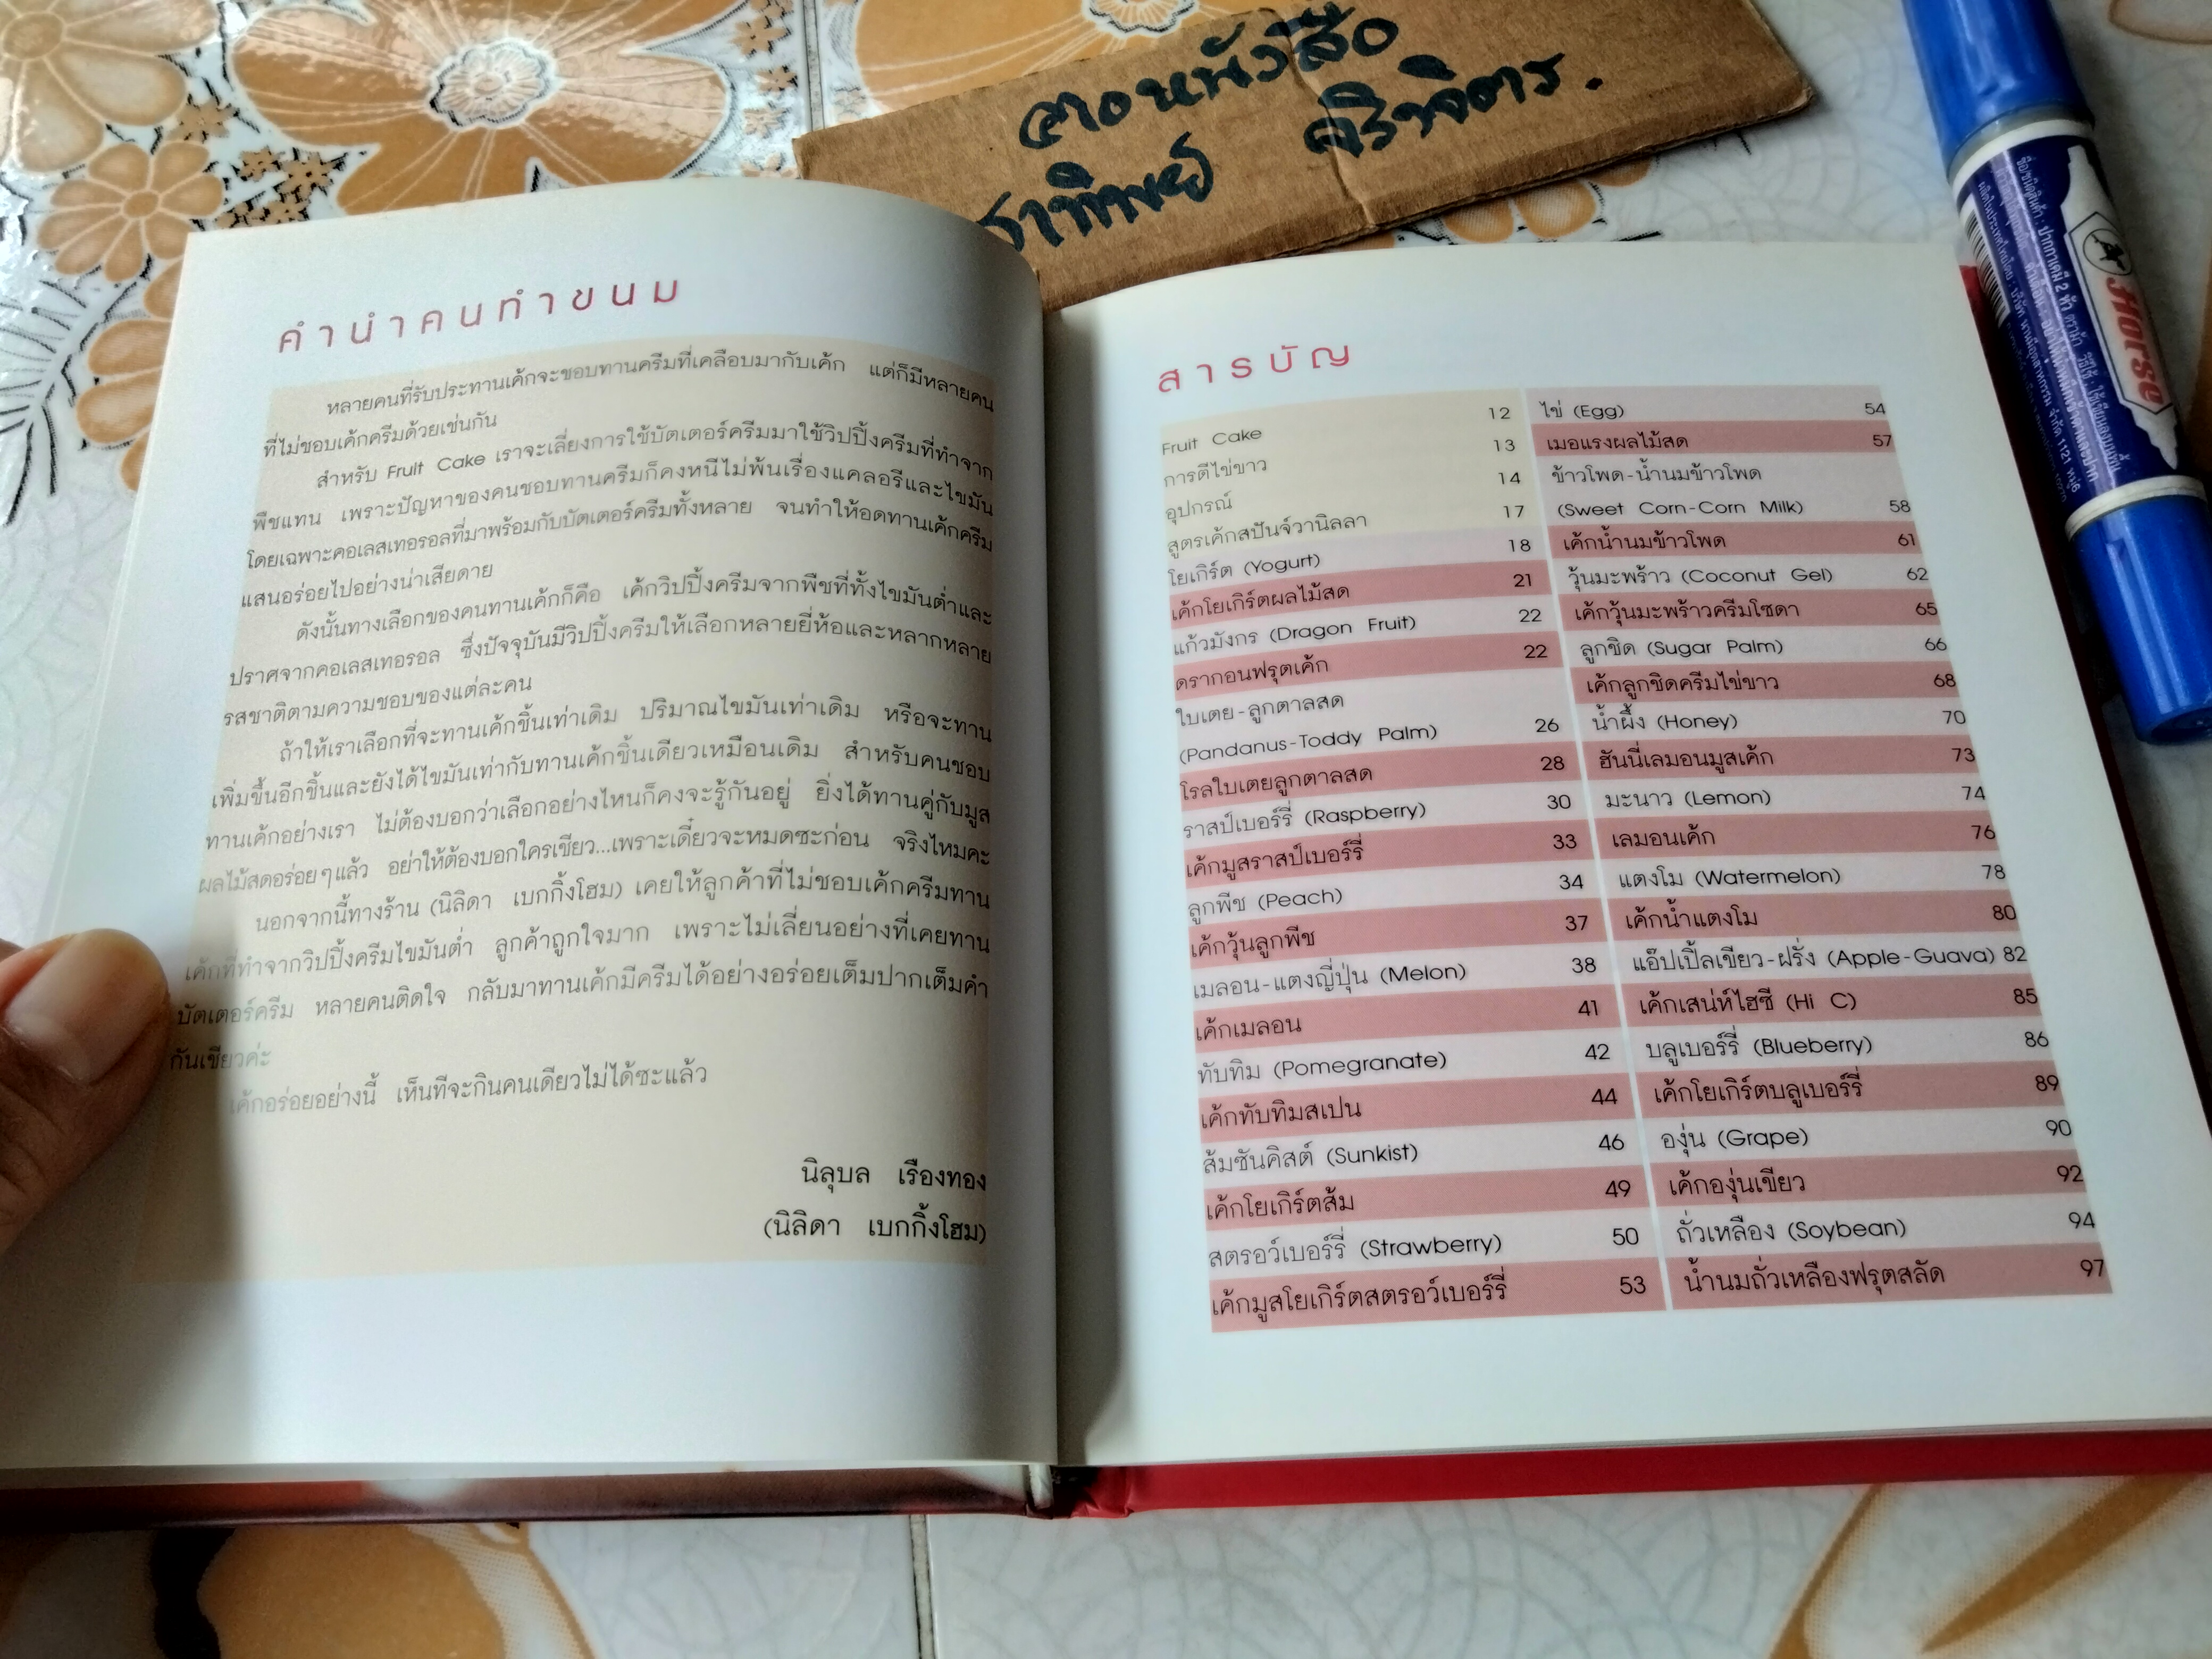 ตอนหนังสือ
ชาทิพย์ ศิริจิตร.
คำนำคนทำขนม
หลายคนที่รับประทานเค้กจะชอบทานครีมที่เคลือบมากับเค้ก แต่ก็มีหลายคน
ที่ไม่ชอบเค้กครีมด้วยเช่นกัน
สำหรับ Fruit Cake เราจะเลี่ยงการใช้บัตเตอร์ครีมมาใช้วิปปิ้งครีมที่ทำจาก
พืชแทน เพราะปัญหาของคนชอบทานครีมก็คงหนีไม่พ้นเรื่องแคลอรีและไขมัน
โดยเฉพาะคอเลสเทอรอลที่มาพร้อมกับบัตเตอร์ครีมทั้งหลาย จนทำให้อดทานเค้กครีม
แสนอร่อยไปอย่างน่าเสียดาย
ดังนั้นทางเลือกของคนทานเค้กก็คือ เค้กวิปปิ้งครีมจากพืชที่ทั้งไขมันต่ำและ
ปราศจากคอเลสเทอรอล ซึ่งปัจจุบันมีวิปปิ้งครีมให้เลือกหลายยี่ห้อและหลากหลาย
รสชาติตามความชอบของแต่ละคน
ถ้าให้เราเลือกที่จะทานเค้กชิ้นเท่าเดิม ปริมาณไขมันเท่าเดิม หรือจะทาน
เพิ่มขึ้นอีกชิ้นและยังได้ไขมันเท่ากับทานเค้กชิ้นเดียวเหมือนเดิม สำหรับคนชอบ
ทานเค้กอย่างเรา ไม่ต้องบอกว่าเลือกอย่างไหนก็คงจะรู้กันอยู่ ยิ่งได้ทานคู่กับมูส
ผลไม้สดอร่อยๆแล้ว อย่าให้ต้องบอกใครเชียว...เพราะเดี๋ยวจะหมดซะก่อน จริงไหมคะ
นอกจากนี้ทางร้าน (นิลิดา เบกกิ้งโฮม) เคยให้ลูกค้าที่ไม่ชอบเค้กครีมทาน
เค้กที่ทำจากวิปปิ้งครีมไขมันต่ำ ลูกค้าถูกใจมาก เพราะไม่เลี่ยนอย่างที่เคยทาน
บัตเตอร์ครีม หลายคนติดใจ กลับมาทานเค้กมีครีมได้อย่างอร่อยเต็มปากเต็มคำ
กันเชียวค่ะ
เค้กอร่อยอย่างนี้ เห็นทีจะกินคนเดียวไม่ได้ซะแล้ว
นิลุบล เรืองทอง
(นิลิดา เบกกิ้งโฮม)
สารบัญ
Fruit Cake 12
การตีไข่ขาว 13
อุปกรณ์ 14
สูตรเค้กสปันจ์วานิลลา 17
โยเกิร์ต (Yogurt) 18
เค้กโยเกิร์ตผลไม้สด 21
แก้วมังกร (Dragon Fruit) 22
ดรากอนฟรุตเค้ก 22
ใบเตย-ลูกตาลสด
(Pandanus-Toddy Palm) 26
โรลใบเตยลูกตาลสด 28
ราสป์เบอร์รี่ (Raspberry) 30
เค้กมูสราสป์เบอร์รี่ 33
ลูกพีช (Peach) 34
เค้กวุ้นลูกพีช 37
เมลอน-แตงญี่ปุ่น (Melon) 38
เค้กเมลอน 41
ทับทิม (Pomegranate) 42
เค้กทับทิมสเปน 44
ส้มซันคิสต์ (Sunkist) 46
เค้กโยเกิร์ตส้ม 49
สตรอว์เบอร์รี่ (Strawberry) 50
เค้กมูสโยเกิร์ตสตรอว์เบอร์รี่ 53
ไข่ (Egg) 54
เมอแรงผลไม้สด 57
ข้าวโพด-น้ำนมข้าวโพด
(Sweet Corn-Corn Milk) 58
เค้กน้ำนมข้าวโพด 61
วุ้นมะพร้าว (Coconut Gel) 62
เค้กวุ้นมะพร้าวครีมโซดา 65
ลูกชิด (Sugar Palm) 66
เค้กลูกชิดครีมไข่ขาว 68
น้ำผึ้ง (Honey) 70
ฮันนี่เลมอนมูสเค้ก 73
มะนาว (Lemon) 74
เลมอนเค้ก 76
แตงโม (Watermelon) 78
เค้กน้ำแตงโม 80
แอ๊ปเปิ้ลเขียว-ฝรั่ง (Apple-Guava) 82
เค้กเสน่ห์ไฮซี (Hi C) 85
บลูเบอร์รี่ (Blueberry) 86
เค้กโยเกิร์ตบลูเบอร์รี่ 89
องุ่น (Grape) 90
เค้กองุ่นเขียว 92
ถั่วเหลือง (Soybean) 94
น้ำนมถั่วเหลืองฟรุตสลัด 97
Horse